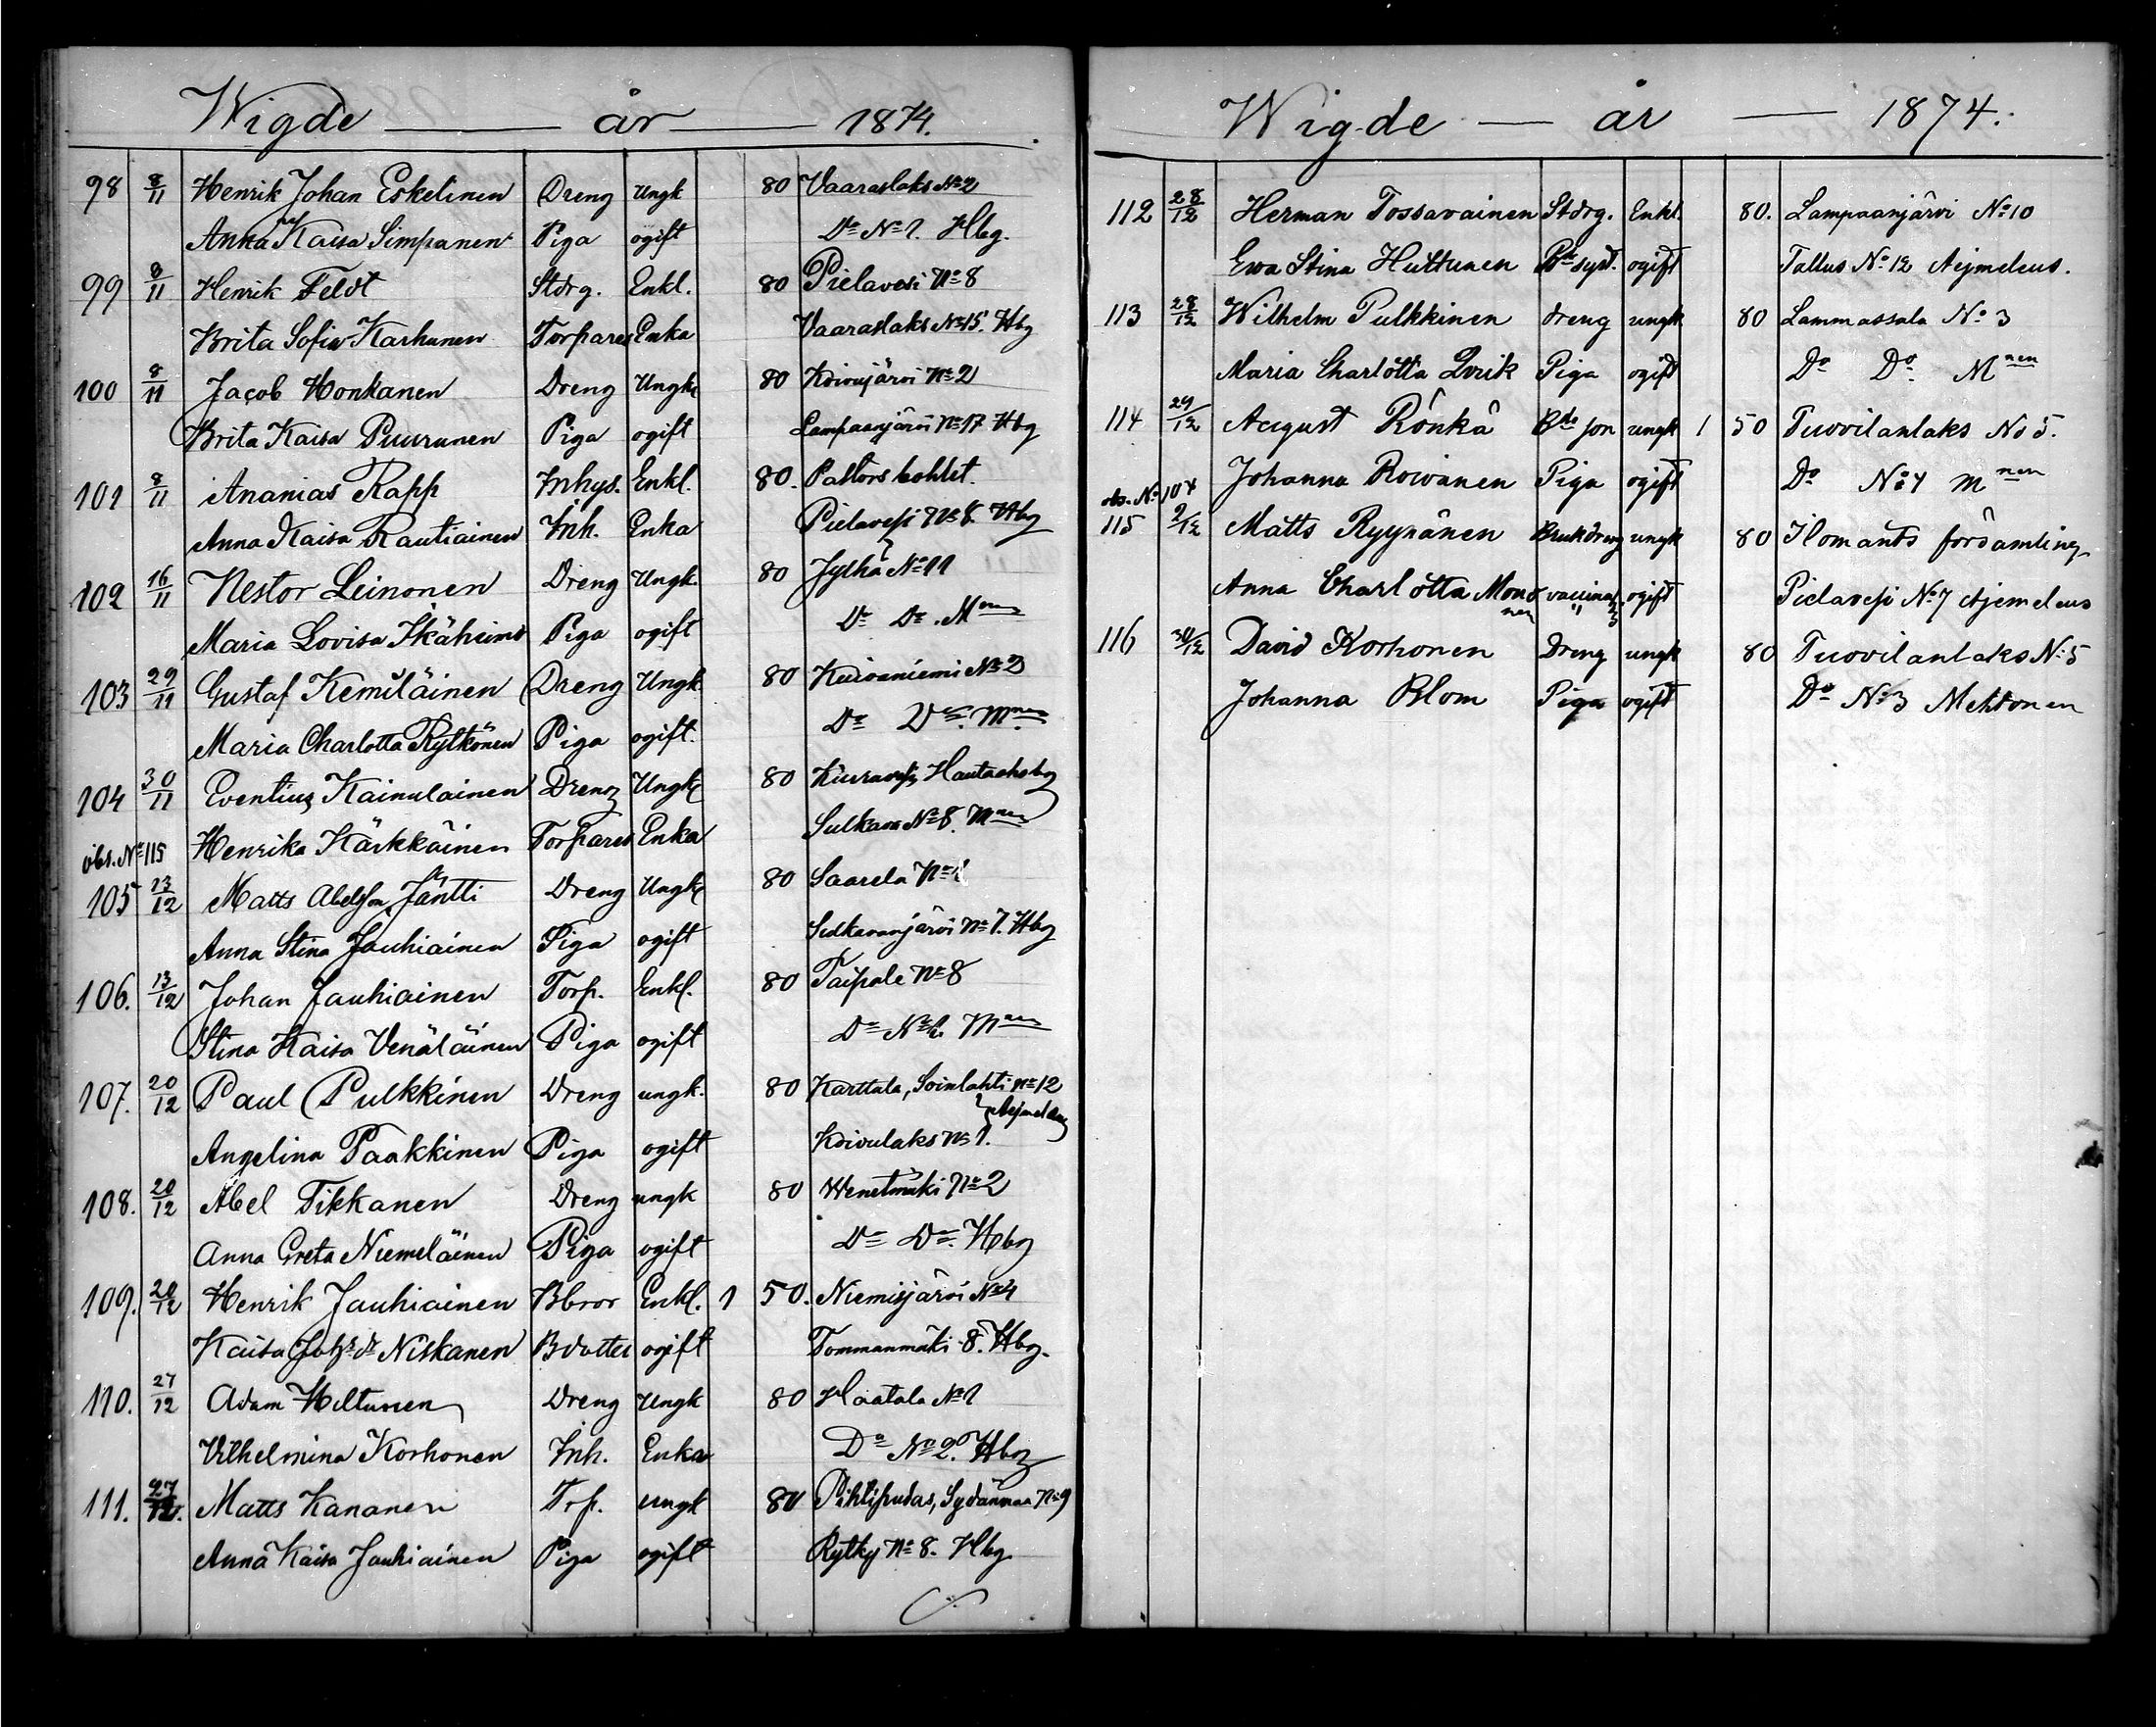 Wigde — år — 1874.
98 8/11 Henrik Johan Eskelinen Dreng Ungk 80 Vaaraslaks No 2
Anna Kaisa Simpanen Piga ogift Do No 1. Hbg.
99 8/11 Henrik Feldt Stdrg. Enkl. 80 Pielavesi No 8
Brita Sofia Karhunen Torpares Enka Vaaraslaks No 15. Hbg
100 8/11 Jacob Honkanen Dreng Ungk 80 Koivujärvi No 2
Brita Kaisa Puurunen Piga ogift Lampaanjärvi No 17 Hbg
101 8/11 Ananias Rapp Inhys. Enkl. 80. Pastorsbohlet.
Anna Kaisa Rautiainen Inh. Enka Pielavesi No 8. Hbg
102 16/11 Nestor Leinonen Dreng Ungk. 80 Jylhä No 11
Maria Lovisa Ikäheimo Piga ogift Do Do. Mnen
103 29/11 Gustaf Kemiläinen Dreng Ungk 80 Kuivaniemi No 2
Maria Charlotta Rytkönen Piga ogift. Do Do. Mnen
104 30/11 Eventius Kainulainen Dreng Ungk 80 Kiuruvesi, Hautachsbg
Henrika Kärkkäinen Torpares Enka Sulkava No 8. Mnen
obs. No 115
105 13/12 Matts Abelsson Jäntti Dreng Ungk 80 Saarela No
Anna Stina Jauhiainen Piga ogift Sulkavanjärvi No 7. Hbg
106. 13/12 Johan Jauhiainen Torp. Enkl. 80 Taipale No 8
Stina Kaisa Venäläinen Piga ogift Do No 2. Mnen
107. 20/12 Paul Pulkkinen Dreng ungk. 80 Karttula, Soinlahti No 12
Aejmelæus
Angelina Paakkinen Piga ogift Koivulaks No 1.
108. 20/12 Abel Tikkanen Dreng ungk 80 Wenetmäki No 2
Anna Greta Niemeläinen Piga ogift Do Do. Hbg
109. 20/12 Henrik Jauhiainen Bbror Enkl. 1 50. Niemisjärvi No 4
Kaisa Johs dr Niskanen Bdotter ogift Tommanmäki 8. Hbg.
110. 27/12 Adam Hiltunen Dreng Ungk 80 Haatala No 1
Vilhelmina Korhonen Inh. Enka Do No 2. Hbg
111. 27/12. Matts Kananen Trp. ungk 80 Pihtipudas, Sydänmaa No 9
Anna Kaisa Jauhiainen Piga ogift Rytky No 8. Hbg
Wigde — år — 1874.
112 28/12 Herman Tossavainen Stdrg. Enkl. 80. Lampaanjärvi No 10
Ewa Stina Huttunen Bds syst. ogift Tallus No 12 Aejmeleus.
113 28/12 Wilhelm Pulkkinen dreng ungk 80 Lammassalo No 3
Maria Charlotta Qvik Piga ogift Do Do. Mnen
114 29/12 August Rönkä Bds son ungk 1 50 Tuovilanlaks No 5.
Johanna Roivanen Piga ogift Do No 4 Mnen
obs. No 104
115 2/12 Matts Ryynänen Brukdreng ungk 80 Ilomants församling
Anna Charlotta Mononen ogift Pielavesi No 7 Ajemeleus
116 30/12 David Korhonen Dreng ungk 80 Tuovilanlaks No 5
Johanna Blom Piga ogift Do No 3 Mehtonen